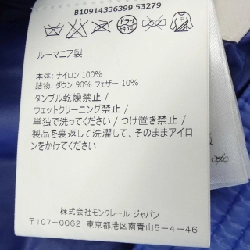 B10914306389 53279
ルーマニア製
本体: ナイロン 100%
詰物: ダウン 90% フェザー 10%
タンブル乾燥禁止 /
ウェットクリーニング禁止 /
単独で洗ってください / つけ置き禁止 /
製品を裏返して洗濯して、そのままアイロ
ンをかけてください
株式会社モンクレール ジャパン
〒107-0062 東京都港区南青山5-4-46